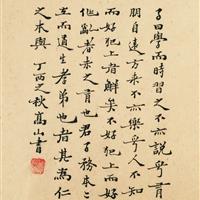 子曰學而時習之不亦說乎有
朋自遠方來不亦樂乎人不知
而好犯上者鮮矣不好犯上而好
作亂者未之有也君子務本本
立而道生孝弟也者其為仁
之本與 丁酉之秋高山書